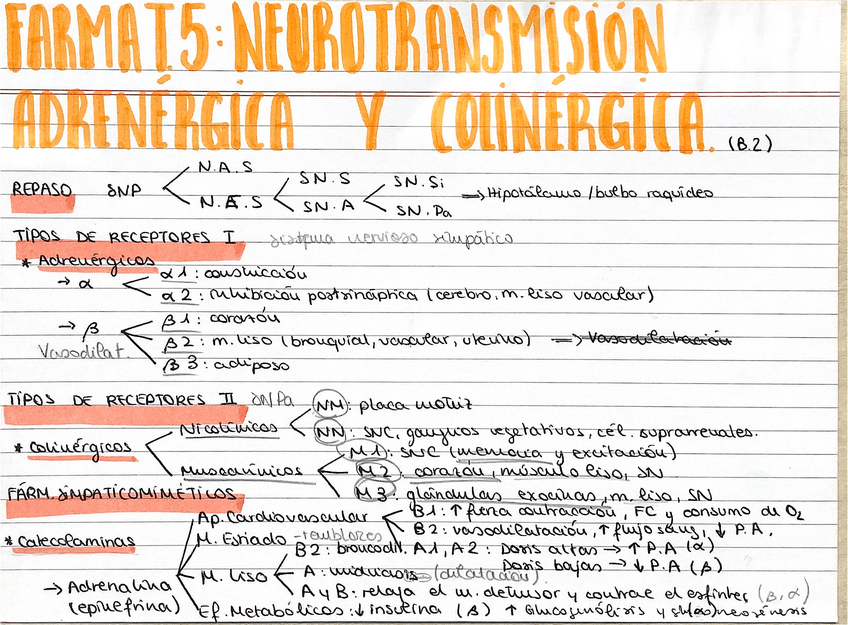 FARMA T.5: NEUROTRANSMISIÓN
ADRENÉRGICA Y COLINÉRGICA. (B.2)
REPASO SNP N.A.S
N.E.S SN.S
SN.A SN.Si
SN.Pa => Hipotálamo / bulbo raquídeo
TIPOS DE RECEPTORES I sistema nervioso simpático
* Adrenérgicos
→ α α1: constricción
α2: inhibición postsináptica (cerebro, m. liso vascular)
→ β β1: corazón
Vasodilat. β2: m. liso (bronquial, vascular, uterino) => Vasodilatación
β3: adiposo
TIPOS DE RECEPTORES II SNPa
* Colinérgicos Nicotínicos NM: placa motriz
NN: SNC, ganglios vegetativos, cél. suprarrenales.
Muscarínicos M.1: SNC (memoria y excitación)
M2: corazón, músculo liso, SN
M3: glándulas exocrinas, m. liso, SN
FÁRM. SIMPATICOMIMÉTICOS
* Catecolaminas
→ Adrenalina
(epinefrina)
Ap. Cardiovascular B1: ↑ fuerza contracción, FC y consumo de O2
B2: vasodilatación, ↑ flujo sang, ↓ P.A.
A1, A2: Dosis altas → ↑ P.A (α)
Dosis bajas → ↓ P.A (β)
M. Estriado - temblores
M. liso B2: broncodil.
A: midriasis (dilatación).
A y B: relaja el m. detrusor y contrae el esfínter (β, α)
Ef. Metabólicos: ↓ insulina (β) ↑ Glucogenólisis y gluconeogénesis